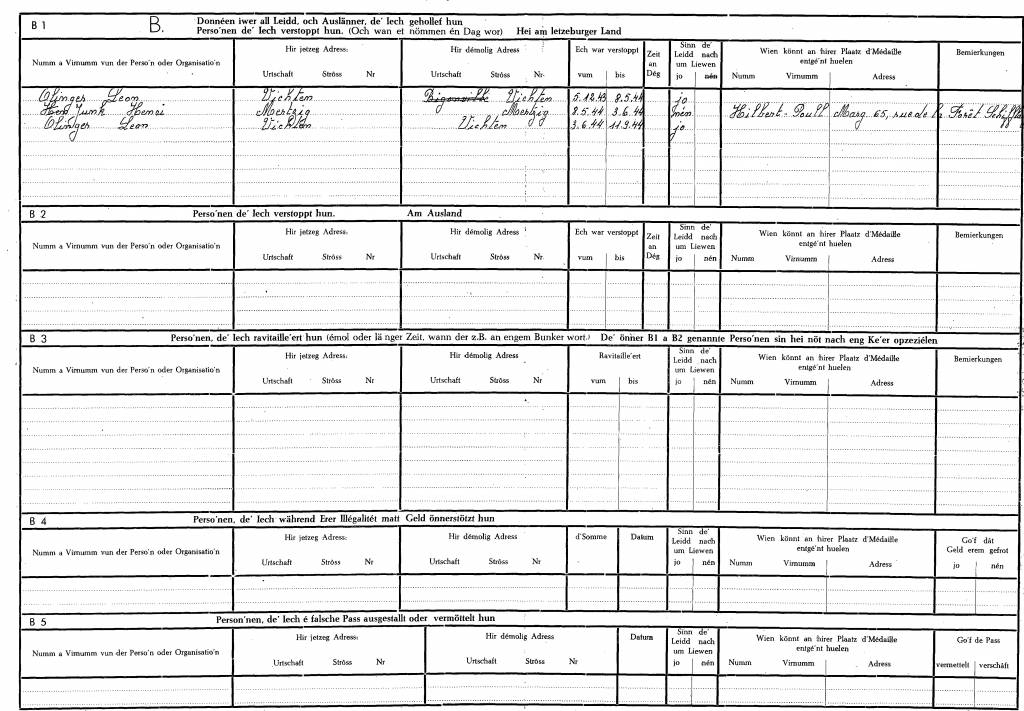 B 1 B. Donnéen iwer all Leidd, och Auslänner, de' Iech gehollef hun
Perso'nen de' Iech verstoppt hun. (Och wan et nömmen én Dag wor) Hei am letzeburger Land
Numm a Virnumm vun der Perso'n oder Organisatio'n Hir jetzeg Adress: Hir démolig Adress Ech war verstoppt Zeit an Dég Sinn de' Leidd nach um Liewen Wien könnt an hirer Plaatz d'Médaille entgé'nt huelen Bemierkungen
Urtschaft Ströss Nr Urtschaft Ströss Nr vum bis jo nén Numm Virnumm Adress
Olinger Leon Vichten Vichten 5.12.43 8.5.44 jo
Junk Mertzig Mertzig 8.5.44 3.6.44 nén Hilbert. Poull Marg 65, rue de la Forêt
Olinger Leon Vichten Vichten 3.6.44 11.9.44 jo
B 2 Perso'nen de' Iech verstoppt hun. Am Ausland
Numm a Virnumm vun der Perso'n oder Organisatio'n Hir jetzeg Adress: Hir démolig Adress Ech war verstoppt Zeit an Dég Sinn de' Leidd nach um Liewen Wien könnt an hirer Plaatz d'Médaille entgé'nt huelen Bemierkungen
Urtschaft Ströss Nr Urtschaft Ströss Nr vum bis jo nén Numm Virnumm Adress
B 3 Perso'nen, de' Iech ravitaille'ert hun (émol oder länger Zeit, wann der z.B. an engem Bunker wort.) De' önner B1 a B2 genannte Perso'nen sin hei nöt nach eng Ke'er opzeziélen
Numm a Virnumm vun der Perso'n oder Organisatio'n Hir jetzeg Adress: Hir démolig Adress Ravitaille'ert Sinn de' Leidd nach um Liewen Wien könnt an hirer Plaatz d'Médaille entgé'nt huelen Bemierkungen
Urtschaft Ströss Nr Urtschaft Ströss Nr vum bis jo nén Numm Virnumm Adress
B 4 Perso'nen, de' Iech während Erer Illégalitét matt Geld önnerstötzt hun
Numm a Virnumm vun der Perso'n oder Organisatio'n Hir jetzeg Adress: Hir démolig Adress d'Somme Datum Sinn de' Leidd nach um Liewen Wien könnt an hirer Plaatz d'Médaille entgé'nt huelen Go'f dát Geld erem gefrot
Urtschaft Ströss Nr Urtschaft Ströss Nr jo nén Numm Virnumm Adress jo nén
B 5 Person'nen, de' Iech é falsche Pass ausgestallt oder vermöttelt hun
Numm a Virnumm vun der Perso'n oder Organisatio'n Hir jetzeg Adress: Hir démolig Adress Datum Sinn de' Leidd nach um Liewen Wien könnt an hirer Plaatz d'Médaille entgé'nt huelen Go'f de Pass
Urtschaft Ströss Nr Urtschaft Ströss Nr jo nén Numm Virnumm Adress vermettelt verschäft